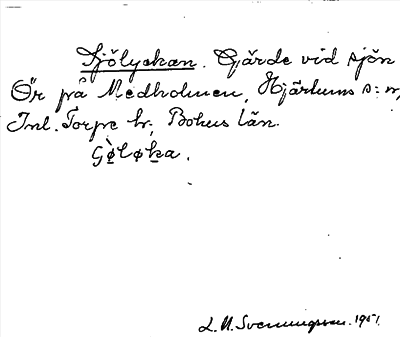 Sjölyckan. Gärde vid sjön
Ör på Medholmen, Hjärtums s:n,
Inl. Torpe hr, Bohus län.
L. M. Svenungsson. 1951.